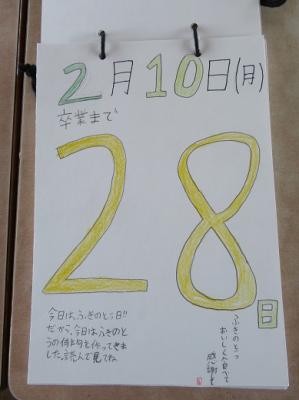 2月10日(月)
卒業まで
28日
今日は、ふきのとう日!!
だから、今日はふきのと
うの俳句を作ってきま
した。読んで見てね
ふきのとう
おいしく食べて
感謝を